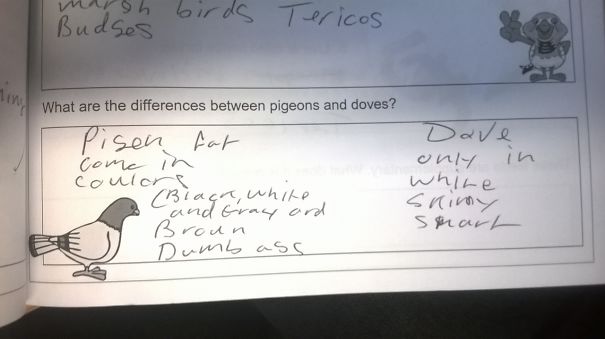 marsh birds Tericos
Budses
What are the differences between pigeons and doves?
Pisen Fat
come in
coulors
(Biack, white
and Gray and
Broun
Dumb ass
Dave
only in
white
skinny
smart